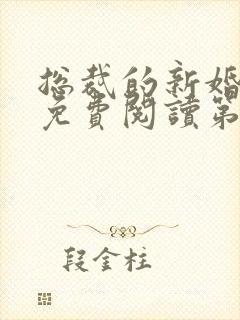 总裁的新婚
免費閱讀第
段金柱